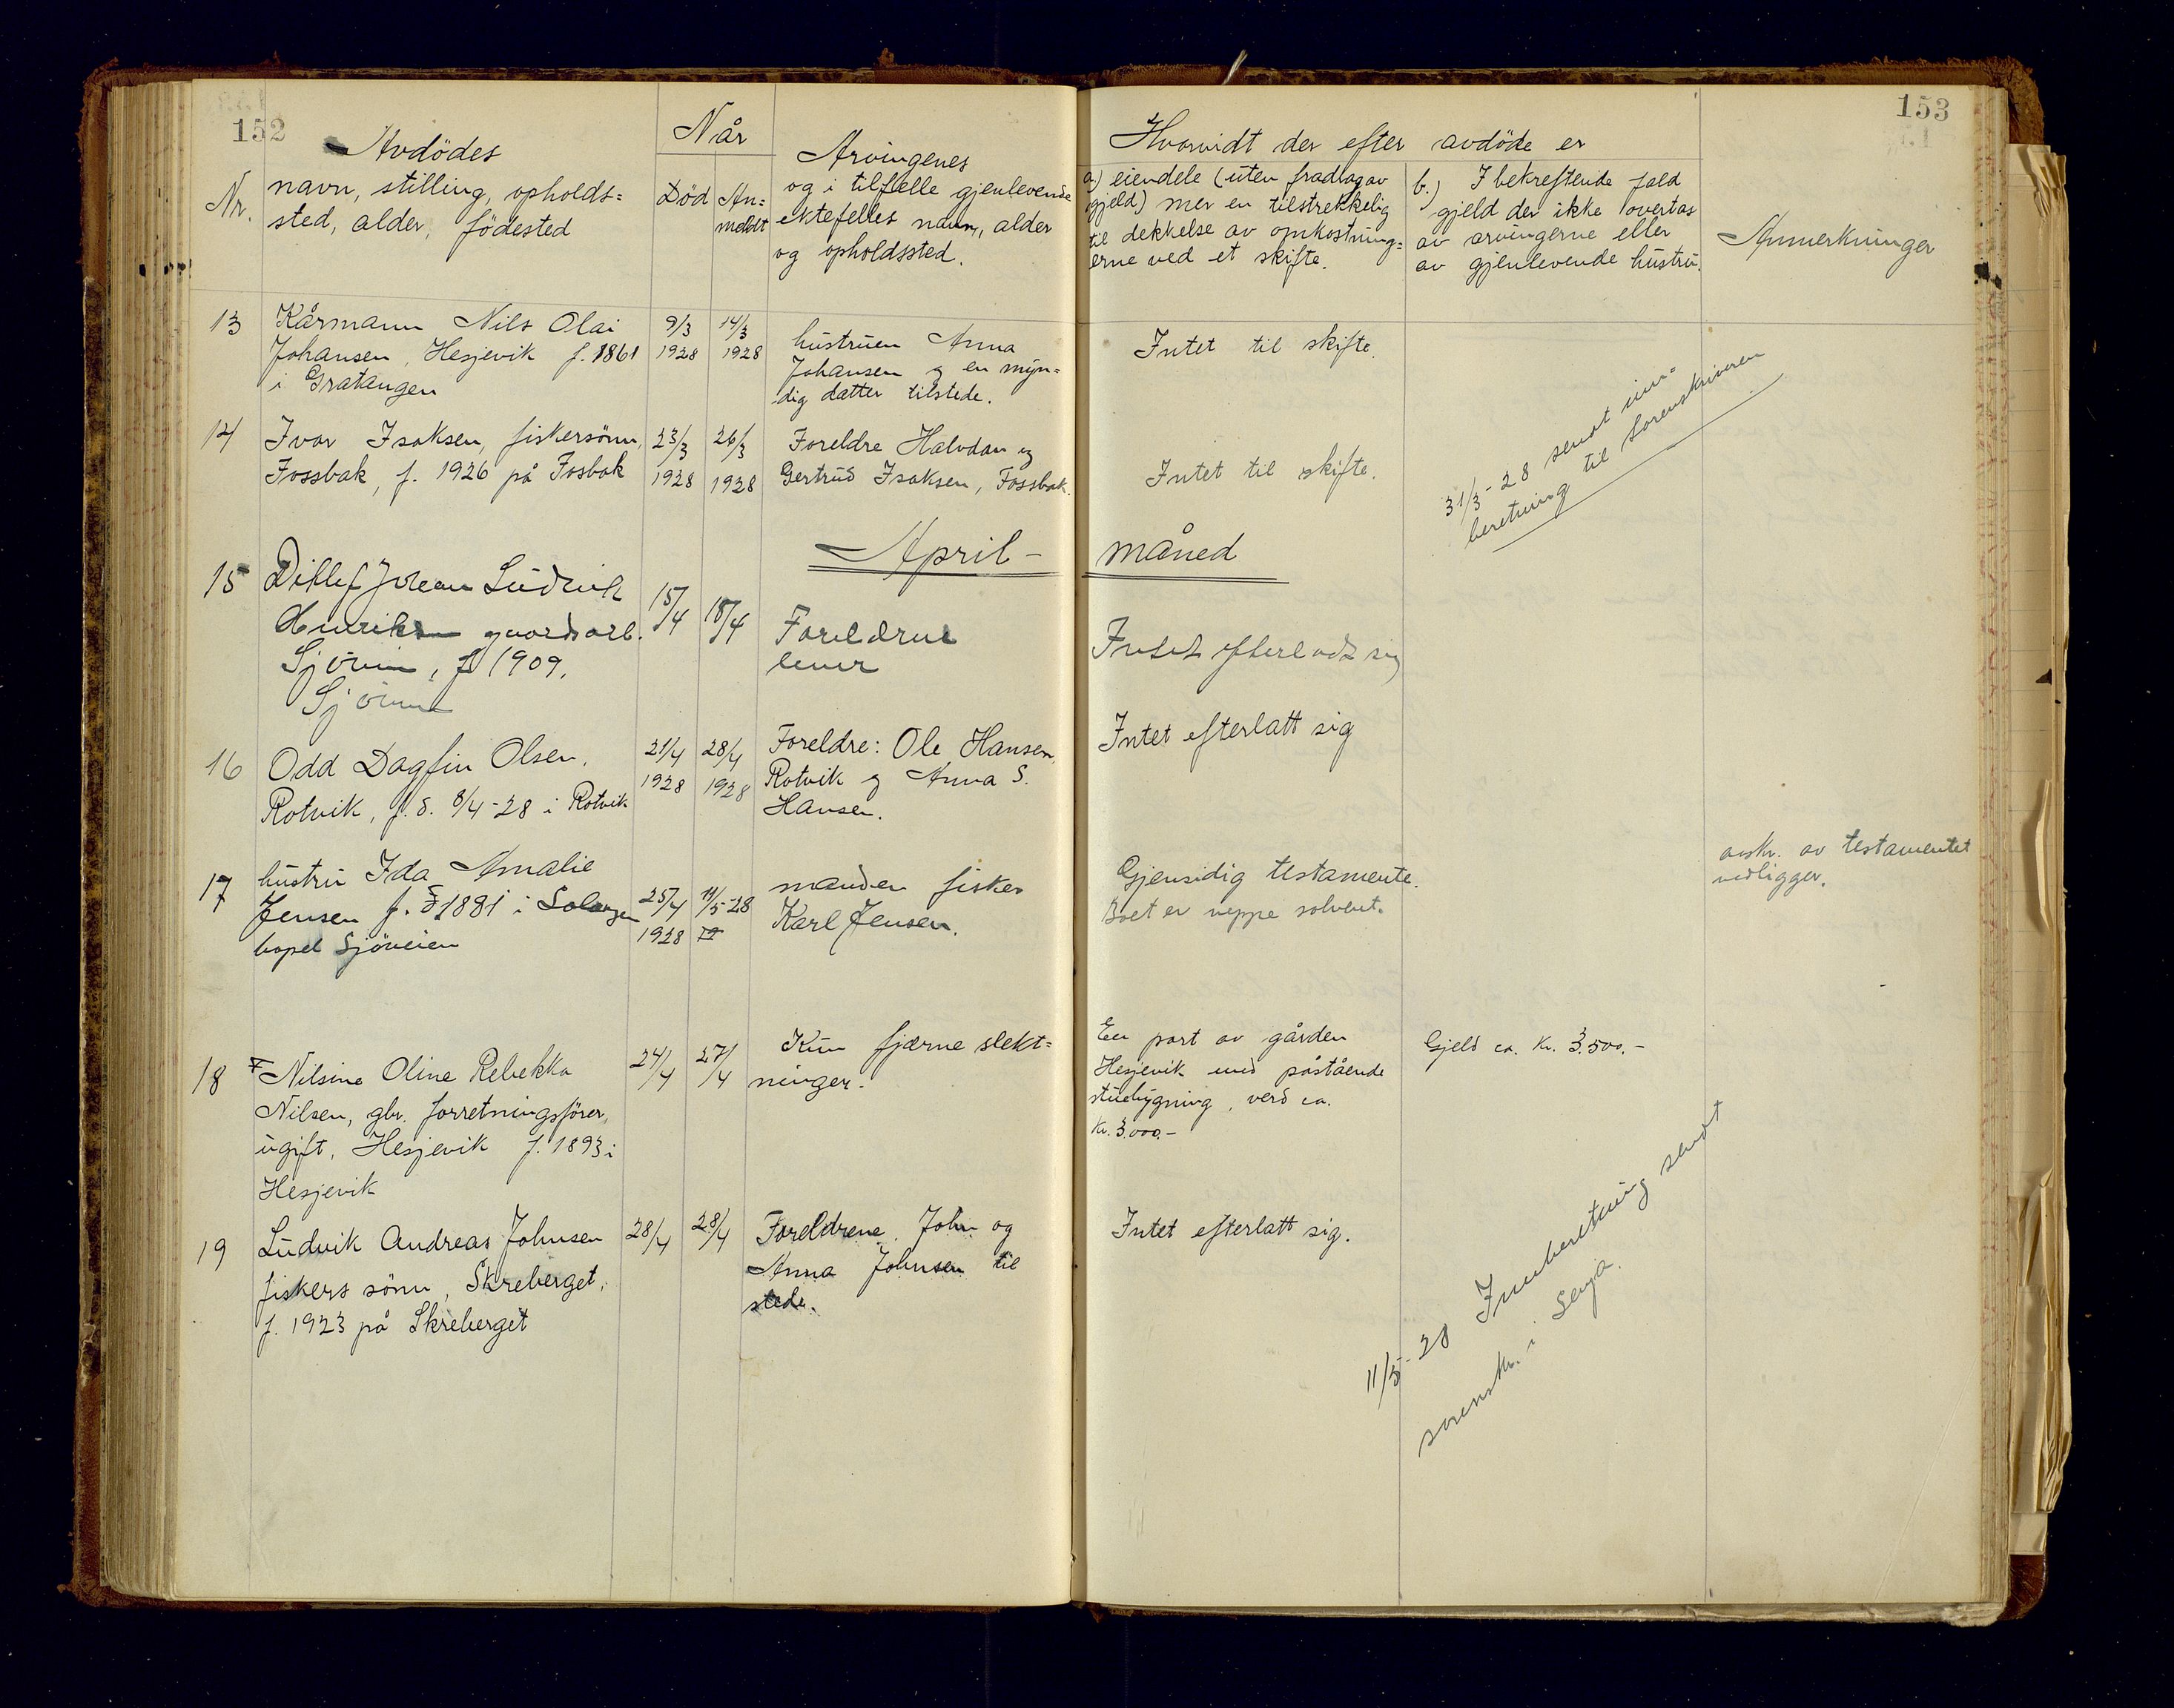 152
Nr.
Avdödes
navn, stilling, opholds=
sted, alder, födested
Når
Död
An=
meldt
Arvingenes
og i tilfælle gjenlevende
ektefelles navn, alder
og opholdssted.
13
Kårmann Nils Olai
Johansen, Hesjevik f. 1861
i Gratangen
9/3
1928
14/3
1928
hustruen Anna
Johansen og en myn=
dig datter tilstede.
14
Ivar Isaksen, fiskersönn,
Fossbak, f. 1926 på Fosbak
23/3
1928
26/3
1928
Foreldre Halvdan og
Gertrud Isaksen, Fossbak.
April -
15
Ditlef Johan Ludvik
Henriksen gaardsarb.
Sjövein, f 1909,
Sjövein
15/4
18/4
Foreldrene
lever
16
Odd Dagfin Olsen,
Rotvik, f. d. 8/4-28 i Rotvik
21/4
1928
28/4
1928
Foreldre: Ole Hansen,
Rotvik og Anna S.
Hansen.
17
hustru Ida Amalie
Jensen f. 1881 i Salangen
bopel Sjöveien
25/4
1928
11/5-28
manden fisker
Karl Jensen.
18
Nilsine Oline Rebekka
Nilsen, gbr. forretningsförer,
ugift, Hesjevik f. 1893 i
Hesjevik
24/4
27/4
Kun fjærne slekt=
ninger.
19
Ludvik Andreas Johnsen
fiskers sönn, Skreberget,
f. 1923 på Skreberget
28/4
28/4
Foreldrene John og
Anna Johnsen til
stede.
153
Hvorvidt der efter avdöde er
a) eiendele (uten fradrag av
gjeld) mer en tilstrekkelig
til dekkelse av omkostning=
erne ved et skifte.
b.) I bekreftende fald
gjeld der ikke overtas
av arvingerne eller
av gjenlevende hustru.
Anmerkninger
Intet til skifte.
Intet til skifte.
31/3-28 sendt inn=
beretning til Sorenskriveren
måned
Intet efterladt sig
Intet efterlatt sig
Gjensidig testamente.
Boet er neppe solvent.
avskr. av testamentet
vedligger.
En part av gården
Hesjevik med påstående
stuebygning, verd ca.
Kr. 3.000.-
Gjeld ca. Kr. 3.500.-
Intet efterlatt sig.
11/5-28 Innberetning sendt
sorenskr. i Senja.